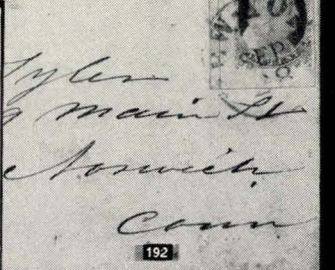 SEP
Tyler
Main St
Norwich
Conn
192